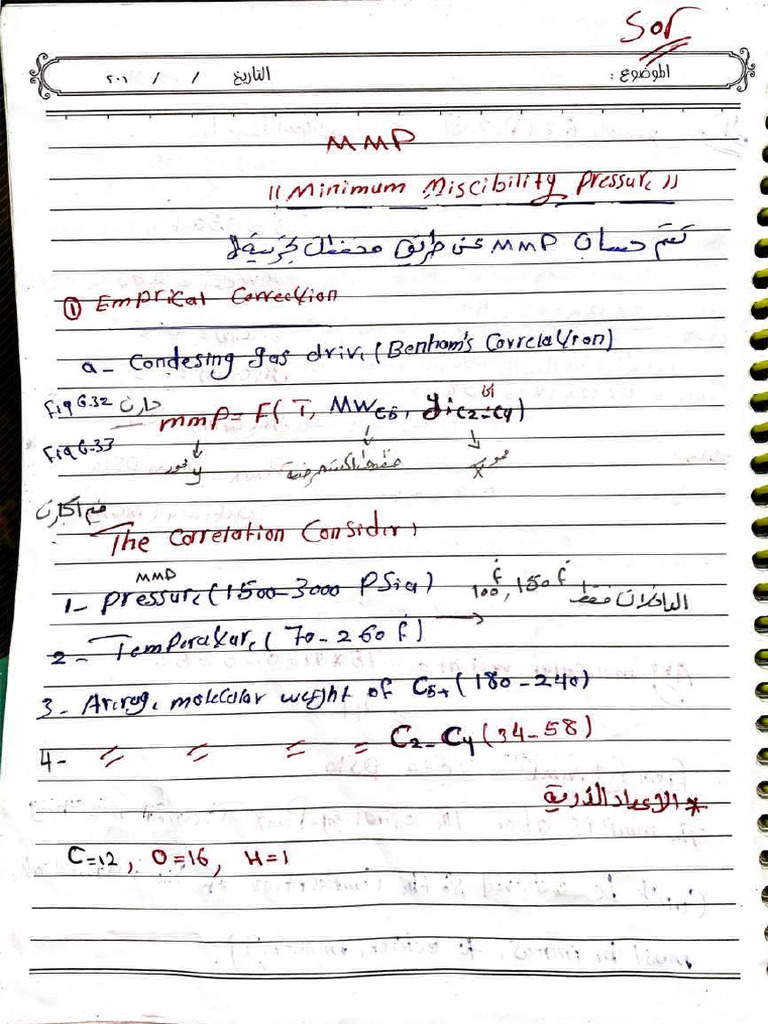 Sor
الموضوع :
التاريخ / / ٢٠١
MMP
"Minimum Miscibility Pressure"
تتم حساب MMP عن طريق
① Emprical Correction
a- Condesing gas drive (Benham's Correlation)
Fig 6.32
mmp = F( T, MWC5, yi C2-C4)
Fig 6-33
محور y
محور x
The Correlation Consider:
MMP
1- Pressure (1500-3000 Psia) 100 f, 150 f فقط
2- Temperature ( 70-260 f)
3- Average molecular weight of C5+ (180-240)
4- = = = = C2-C4 (34-58)
* الاعداد الذرية
C=12, O=16, H=1